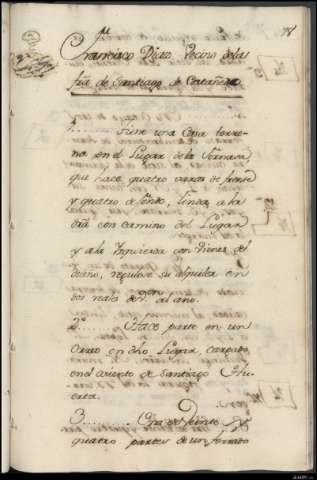 78
Francisco Diaz, Vecino de la
fra de Santiago de Cartañeda
1....... Tiene una Casa terre-
na en el Lugar de la
que hace quatro varas de frente
y quatro de fondo, Linda a la
dra con camino del Lugar
y a la Izquierda con vienes del
regulose su alquiler en
dos reales de vn. al ano.
2....... Hace parte en un
Orrio en dho Lugar, cargado
en el asiento de Santiago
3....... Una de
quatro partes de un ferrado